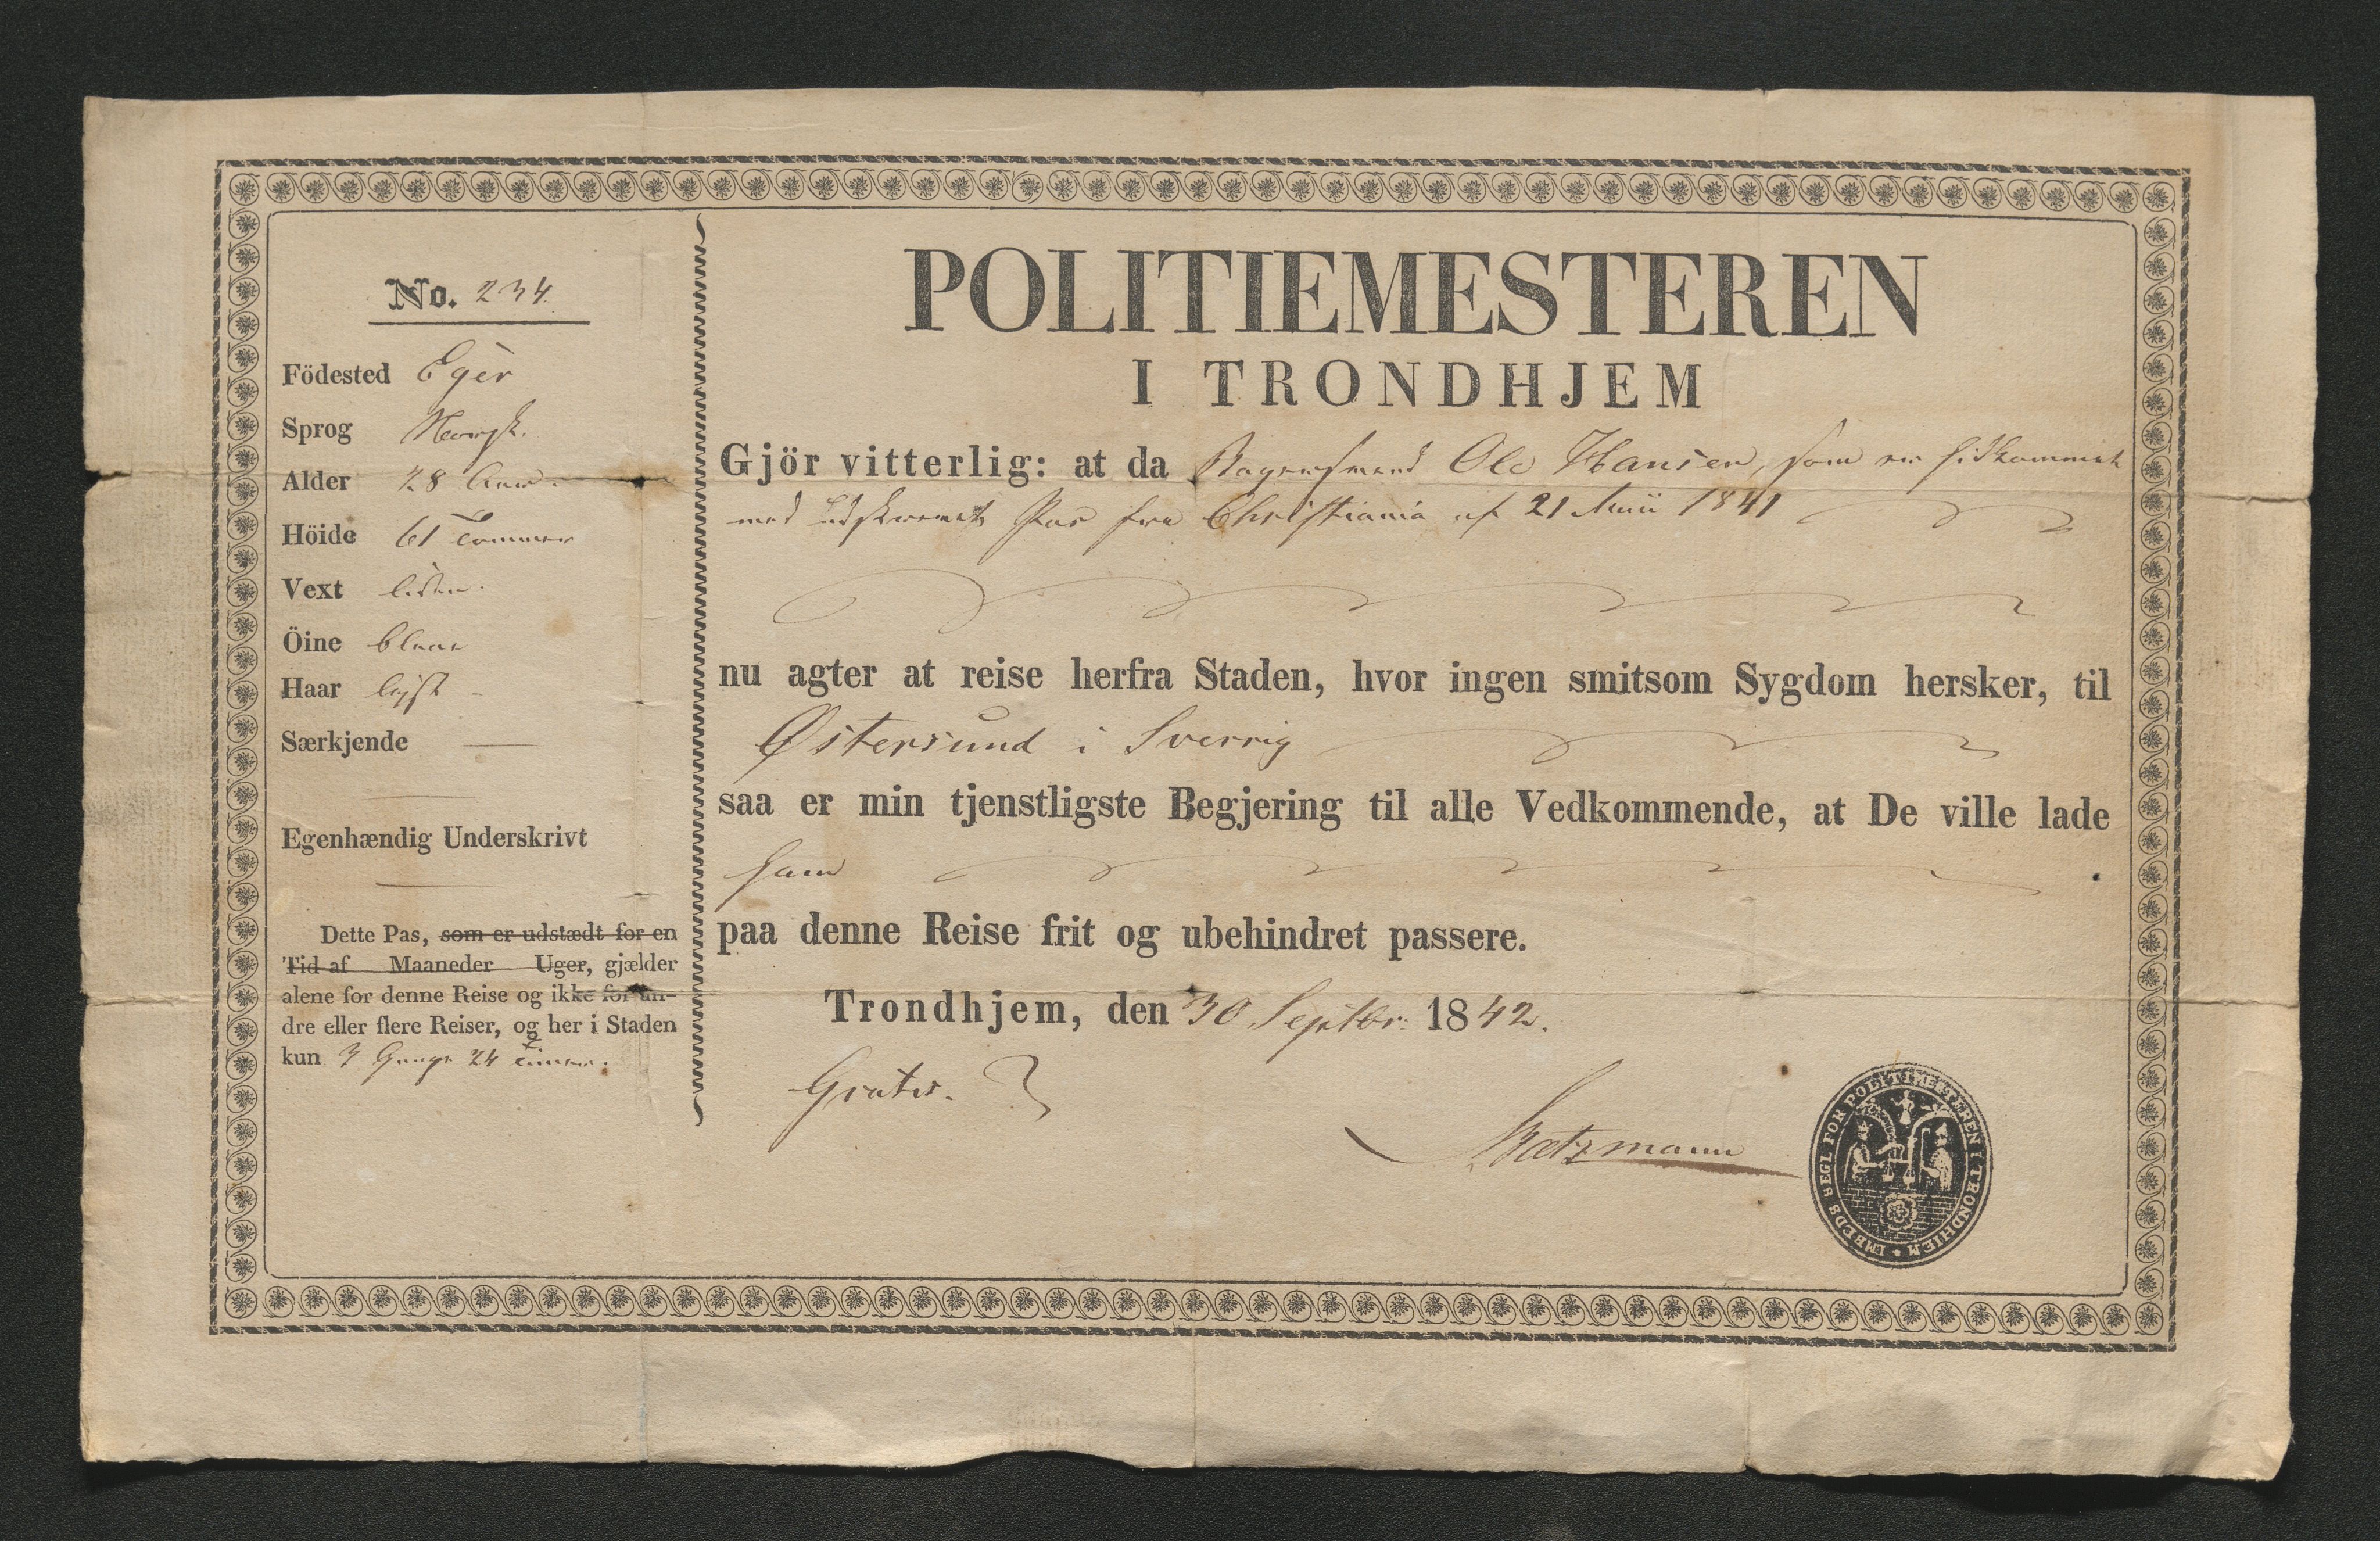 No. 234.
Födested Eger
Sprog Norsk.
Alder 28 Aar.
Höide 61 Tommer
Vext liden.
Öine blaae
Haar lyst
Særkjende
Egenhændig Underskrivt
Dette Pas, som er udstædt for en
Tid af Maaneder Uger, gjælder
alene for denne Reise og ikke for an-
dre eller flere Reiser, og her i Staden
kun 3 Gange 24 Timer.
POLITIEMESTEREN
I TRONDHJEM
Gjör vitterlig: at da Ole Hansen, som er hidkommet
med Pas fra Christiania af 21 1841
nu agter at reise herfra Staden, hvor ingen smitsom Sygdom hersker, til
Østersund i Sverrig
saa er min tjenstligste Begjering til alle Vedkommende, at De ville lade
ham
paa denne Reise frit og ubehindret passere.
Trondhjem, den 30 Septbr. 1842.
Gratis.
EMBEDS SEGL FOR POLITIMESTEREN I TRONDHIEM